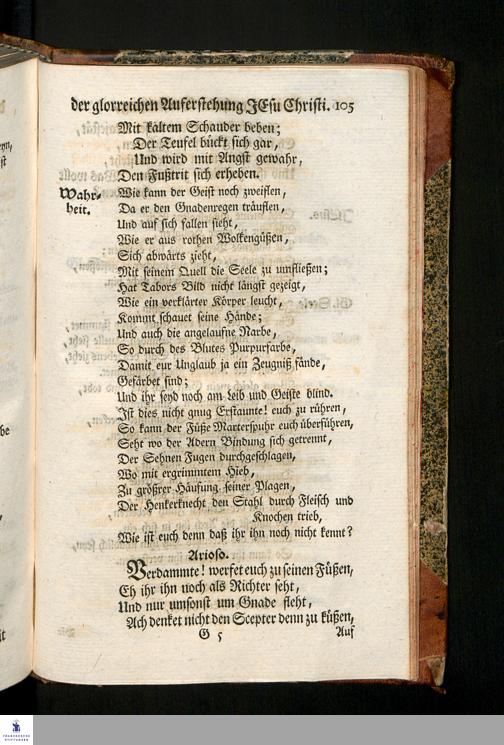 der glorreichen Auferstehung JEsu Christi. 105
Mit kaltem Schauder beben;
Der Teufel bückt sich gar,
Und wird mit Angst gewahr,
Den Fußtrit sich erheben.
Wahrheit. Wie kann der Geist noch zweiflen,
Da er den Gnadenregen träuflen,
Und auf sich fallen sieht,
Wie er aus rothen Wolkengüßen,
Sich abwärts zieht,
Mit seinem Quell die Seele zu umfließen;
Hat Tabors Bild nicht längst gezeigt,
Wie ein verklärter Körper leucht,
Kommt, schauet seine Hände;
Und auch die angelaufne Narbe,
So durch des Blutes Purpurfarbe,
Damit eur Unglaub ja ein Zeugniß fände,
Gefärbet sind;
Und ihr seyd noch am Leib und Geiste blind.
Ist dies nicht gnug Erstaunte! euch zu rühren,
So kann der Füße Marterspuhr euch überführen,
Seht wo der Adern Bindung sich getrennt,
Der Sehnen Fugen durchgeschlagen,
Wo mit ergrimmtem Hieb,
Zu größrer Häufung seiner Plagen,
Der Henkerknecht den Stahl durch Fleisch und
Knochen trieb,
Wie ist euch denn daß ihr ihn noch nicht kennt?
Arioso.
Verdammte! werfet euch zu seinen Füßen,
Eh ihr ihn noch als Richter seht,
Und nur umsonst um Gnade fleht,
Ach denket nicht den Scepter denn zu küßen,
G 5 Auf
FRANCKESCHE
STIFTUNGEN